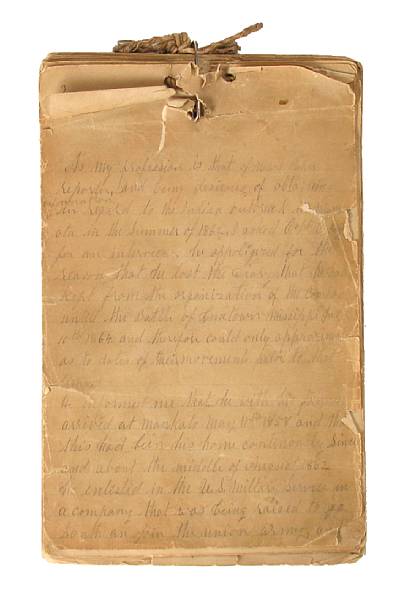 As my profession is that of News Paper
reporter, and being desireous of obtaining
information
in regard to the Indian outbreak in
ota in the Summer of 1862, I asked
for an interview. he appoligized for the
reason that he lost the Diary that he had
kept from the organization of the Company
untill the Battle of Guntown Mississippi June
10th 1864 and therefore could only approximate
as to dates of their movements prior to that
time.
He informed me that he with his
arrived at Mankato May 10th 1858 and that
this had been his home continously Since
and about the middle of August 1862
he enlested in the U.S. Military Service in
a company that was being raised to go
South an join the union army, and